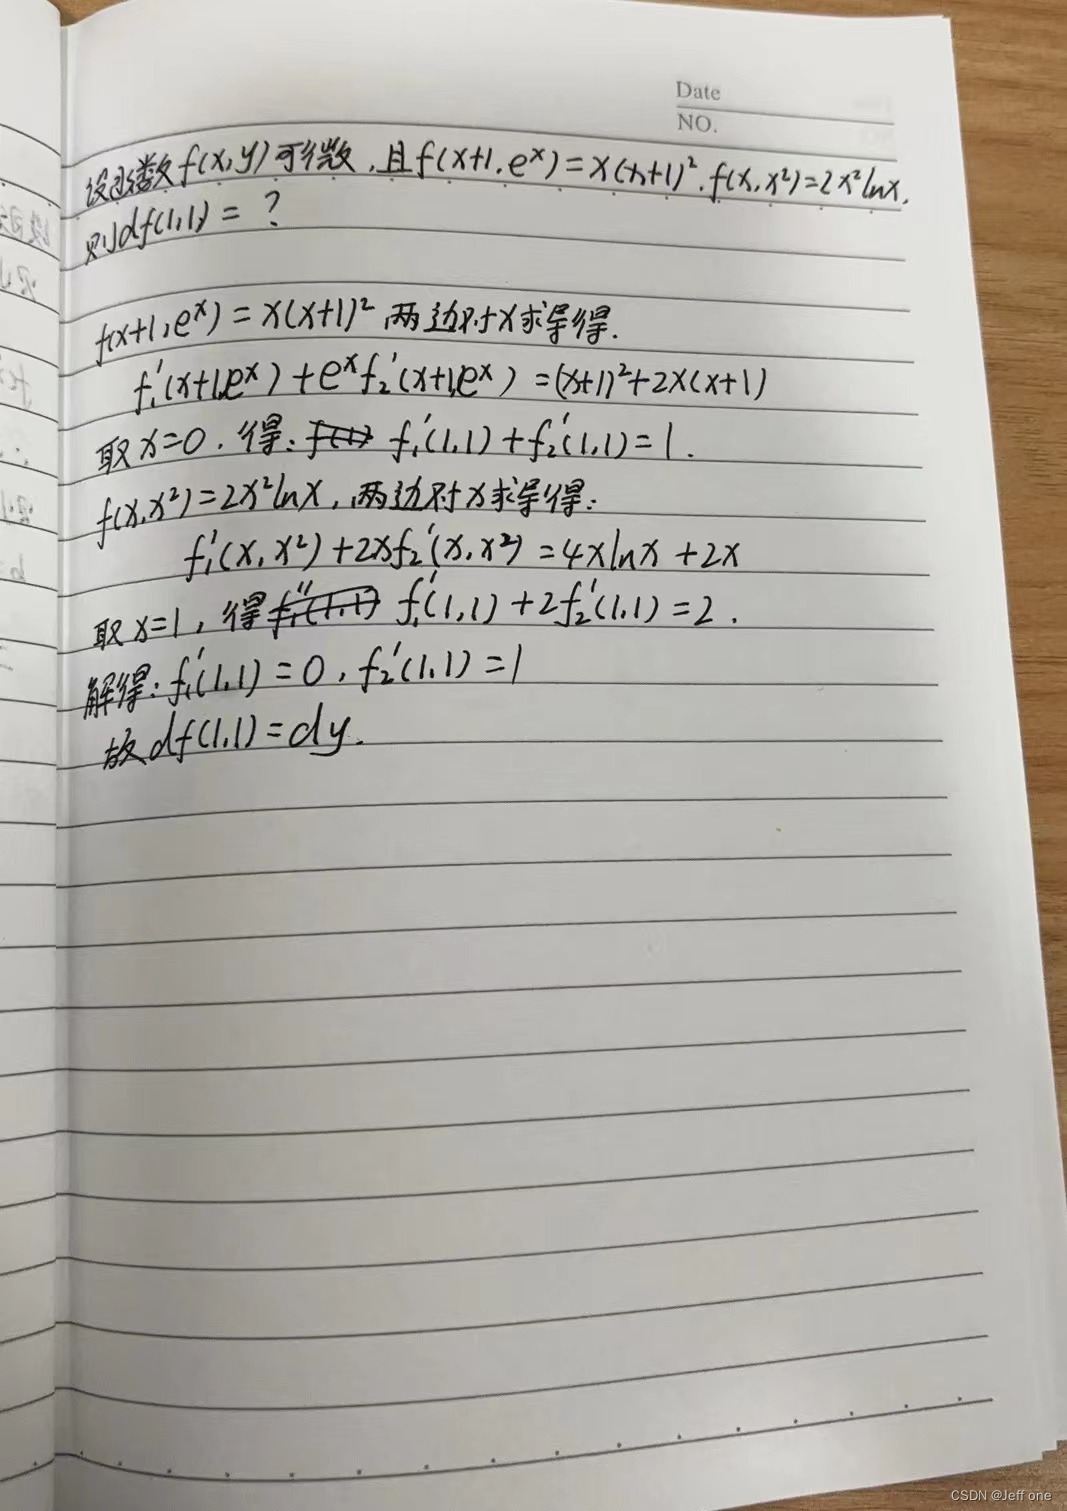 Date
NO.
设函数f(x,y)可微,且f(x+1,eˣ)=x(x+1)²,f(x,x²)=2x²lnx,
则df(1,1)=?
f(x+1,eˣ)=x(x+1)²两边对x求导得.
f₁'(x+1,eˣ)+eˣf₂'(x+1,eˣ)=(x+1)²+2x(x+1)
取x=0.得: f₁'(1,1)+f₂'(1,1)=1.
f(x,x²)=2x²lnx,两边对x求导得:
f₁'(x,x²)+2xf₂'(x,x²)=4xlnx+2x
取x=1,得 f₁'(1,1)+2f₂'(1,1)=2.
解得:f₁'(1,1)=0,f₂'(1,1)=1
故df(1,1)=dy.
CSDN @Jeff one